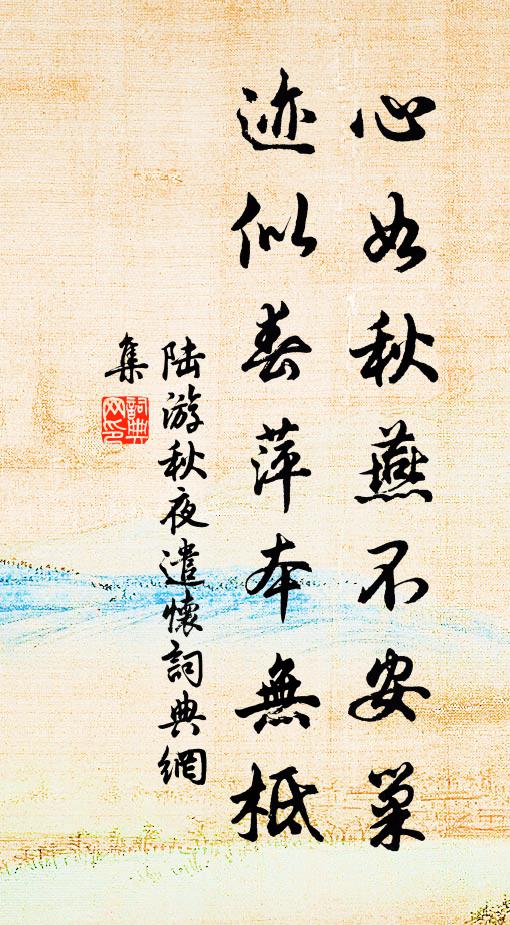 心如秋燕不安巢
迹似春萍本無柢
陆游秋夜遣懷詞典網
集
詞典
网印